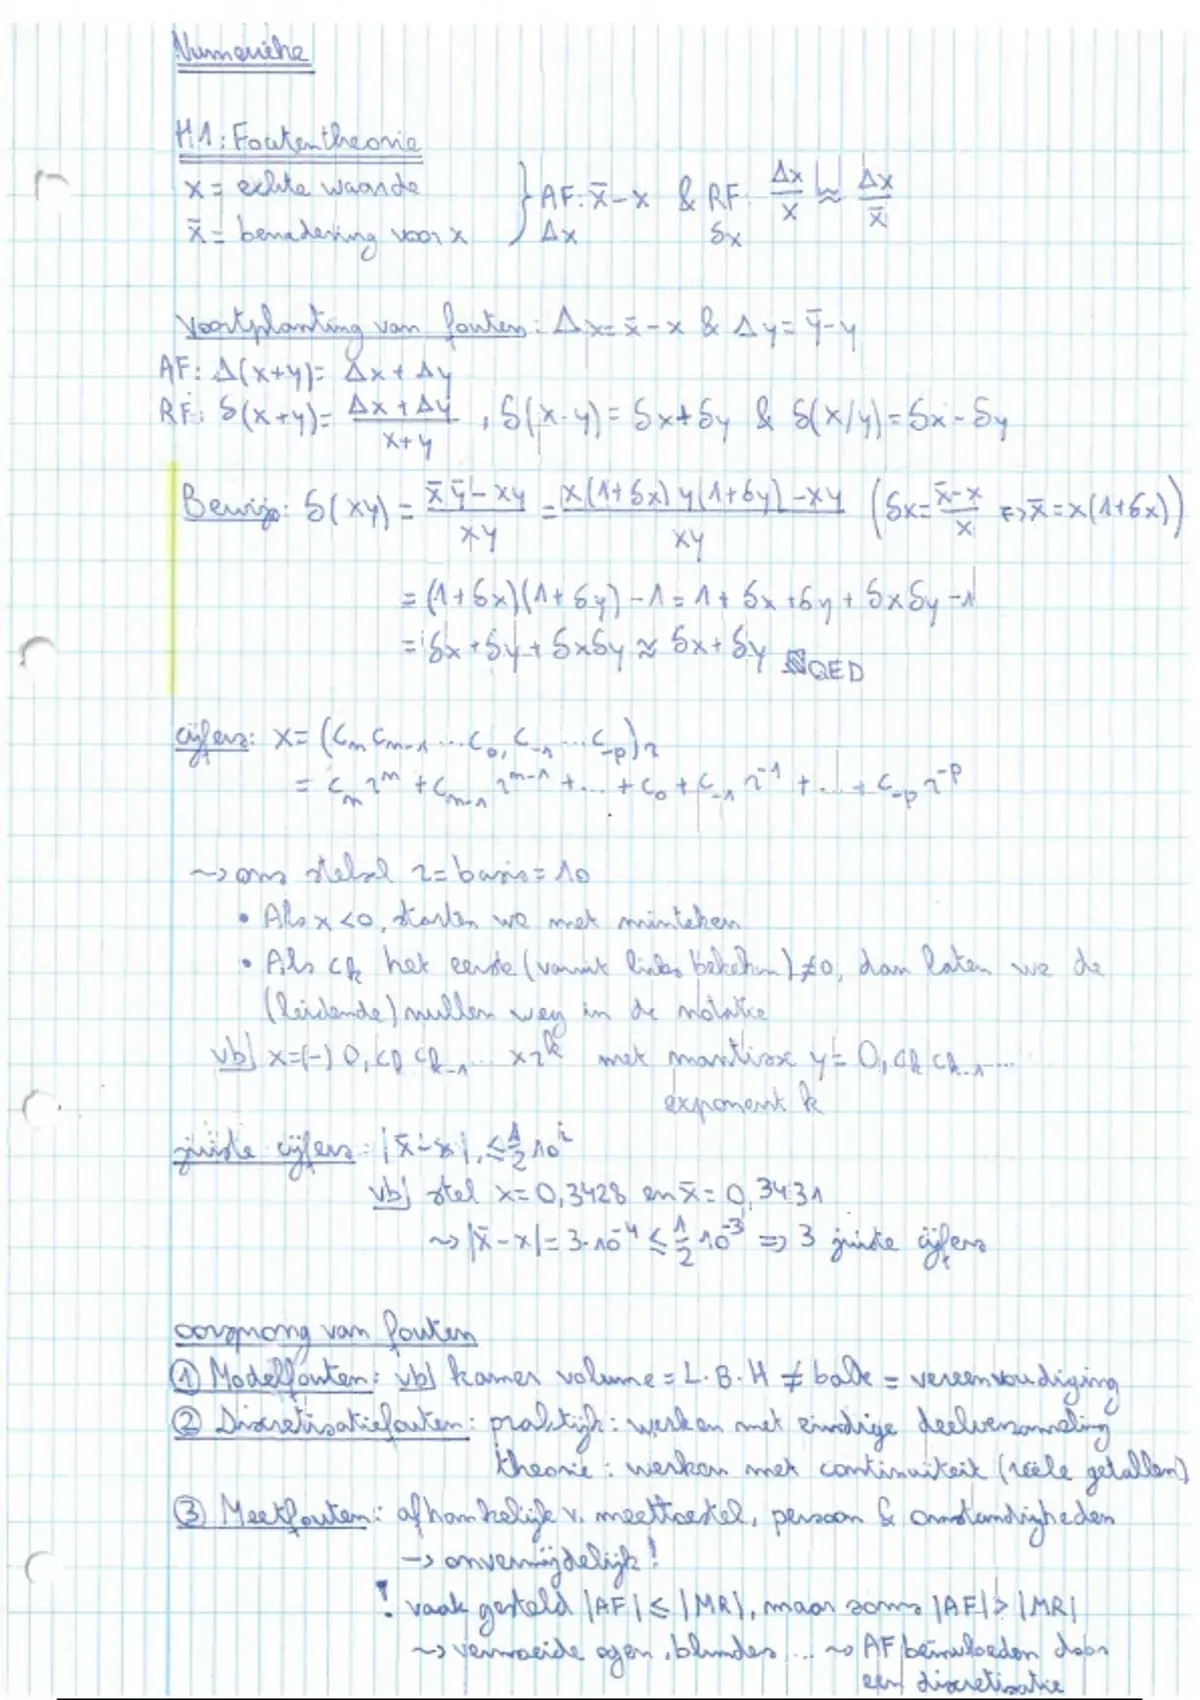 Numerieke
H.1: Foutentheorie
x = echte waarde
x̄ = benadering voor x } AF: x̄-x & RF: Δx/x ≈ Δx/x̄
Δx δx
Voortplanting van fouten: Δx = x̄-x & Δy = ȳ-y
AF: Δ(x+y) = Δx + Δy
RF: δ(x+y) = (Δx + Δy)/(x+y) , δ(x·y) = δx+δy & δ(x/y) = δx-δy
Bewijs: δ(xy) = (x̄ȳ - xy)/(xy) = (x(1+δx) y(1+δy) - xy)/(xy) (δx = (x̄-x)/x ⇔ x̄ = x(1+δx))
= (1+δx)(1+δy) - 1 = 1 + δx + δy + δxδy - 1
= δx + δy + δxδy ≈ δx + δy QED
cijfers: x = (c_m c_{m-1} ... c_0, c_{-1} ... c_{-p})_r
= c_m r^m + c_{m-1} r^{m-1} + ... + c_0 + c_{-1} r^{-1} + ... + c_{-p} r^{-p}
~> ons stelsel r = basis = 10
• Als x < 0, starten we met minteken
• Als c_k het eerste (vanuit links bekeken) ≠ 0, dan laten we de
(leidende) nullen weg in de notatie
vb) x = (-) 0, c_k c_{k-1} ... x r^k met mantisse y = 0, c_k c_{k-1} ...
exponent k
juiste cijfers: |x̄-x| ≤ 1/2 10^i
vb) stel x = 0,3428 en x̄ = 0,3431
~> |x̄-x| = 3·10^-4 ≤ 1/2 10^-3 => 3 juiste cijfers
oorsprong van fouten
① Modelfouten: vb) kamer volume = L·B·H ≠ balk = vereenvoudiging
② Discretisatiefouten: praktijk: werken met eindige deelverzameling
theorie: werken met continuïteit (reële getallen)
③ Meetfouten: afhankelijk v. meettoestel, persoon & omstandigheden
-> onvermijdelijk!
! vaak gesteld |AF| ≤ |MR|, maar soms |AF| > |MR|
~> vermoeide ogen, ... ~> AF beïnvloeden door
een discretisatie